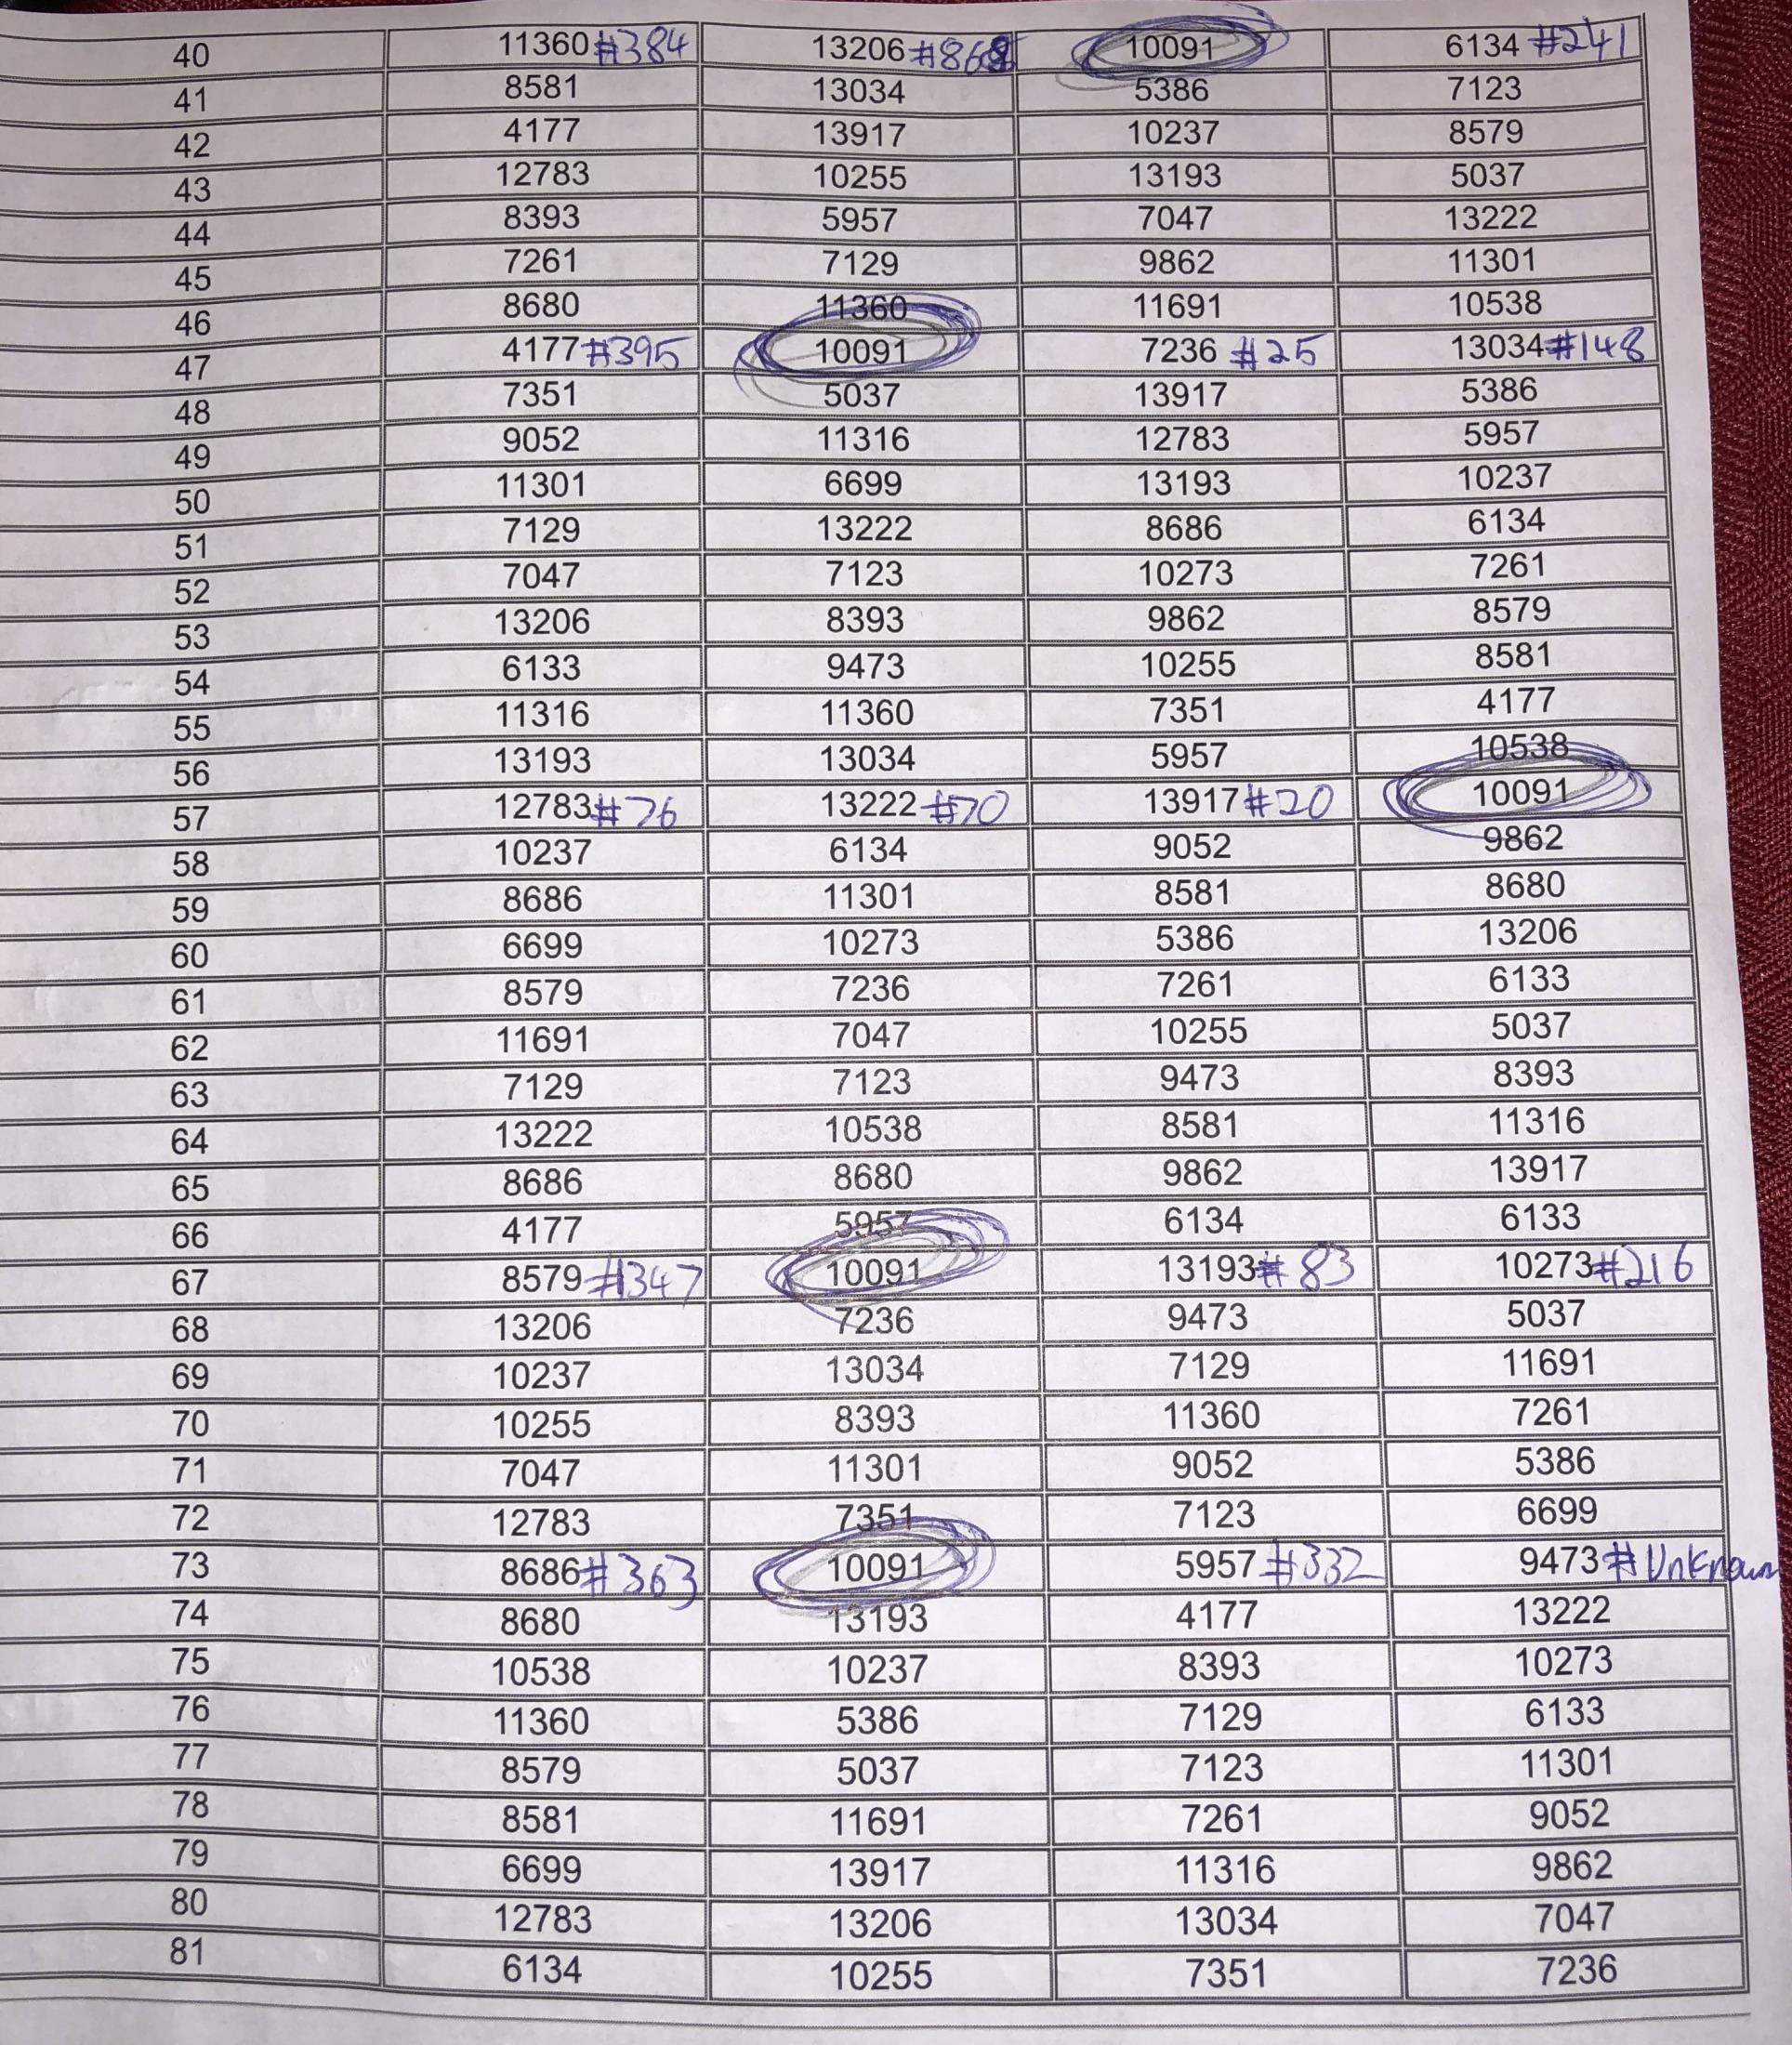 40 11360 #384 13206 #868 10091 6134 #241
41 8581 13034 5386 7123
42 4177 13917 10237 8579
43 12783 10255 13193 5037
44 8393 5957 7047 13222
45 7261 7129 9862 11301
46 8680 11360 11691 10538
47 4177 #395 10091 7236 #25 13034 #148
48 7351 5037 13917 5386
49 9052 11316 12783 5957
50 11301 6699 13193 10237
51 7129 13222 8686 6134
52 7047 7123 10273 7261
53 13206 8393 9862 8579
54 6133 9473 10255 8581
55 11316 11360 7351 4177
56 13193 13034 5957 10538
57 12783 #76 13222 #70 13917 #20 10091
58 10237 6134 9052 9862
59 8686 11301 8581 8680
60 6699 10273 5386 13206
61 8579 7236 7261 6133
62 11691 7047 10255 5037
63 7129 7123 9473 8393
64 13222 10538 8581 11316
65 8686 8680 9862 13917
66 4177 5957 6134 6133
67 8579 #347 10091 13193 #83 10273 #216
68 13206 7236 9473 5037
69 10237 13034 7129 11691
70 10255 8393 11360 7261
71 7047 11301 9052 5386
72 12783 7351 7123 6699
73 8686 #363 10091 5957 #332 9473 #Unknown
74 8680 13193 4177 13222
75 10538 10237 8393 10273
76 11360 5386 7129 6133
77 8579 5037 7123 11301
78 8581 11691 7261 9052
79 6699 13917 11316 9862
80 12783 13206 13034 7047
81 6134 10255 7351 7236